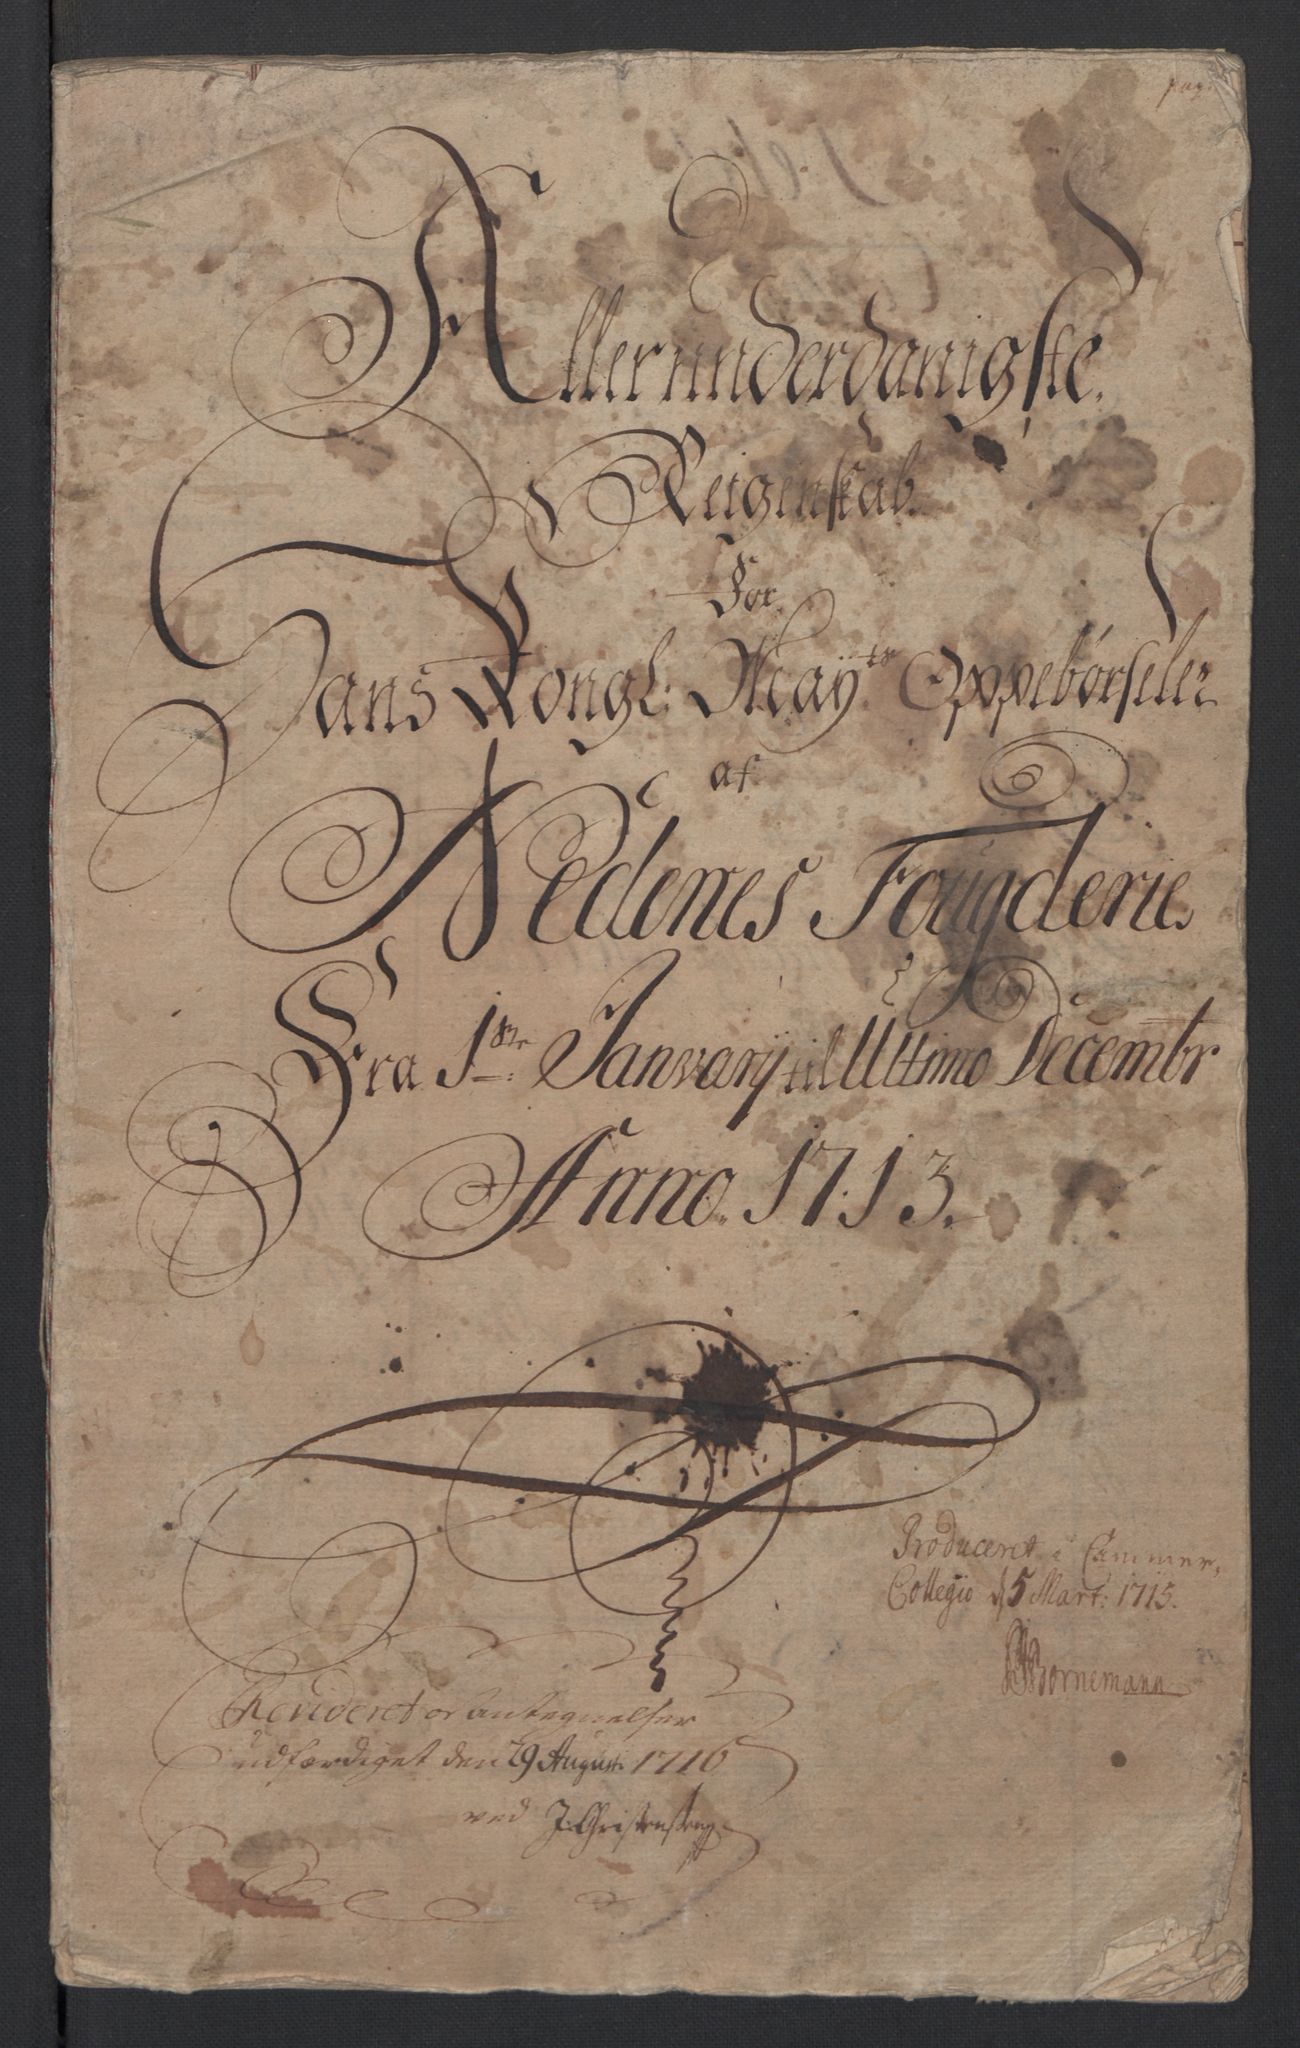 pag:
Allerunderdanigste
Reigenskab
For
Hans Kongl: Mayts Oppebørseler
af
Nedenes Fougderie
Fra 1ste Januarij til Ultimo Decembr
Anno 1713.
Produceret i Cammer
Collegio d 5 Mart: 1715.
Bornemann
Revideret og antegnelser
udfærdiget den 29 August: 1716
ved J: Christensen